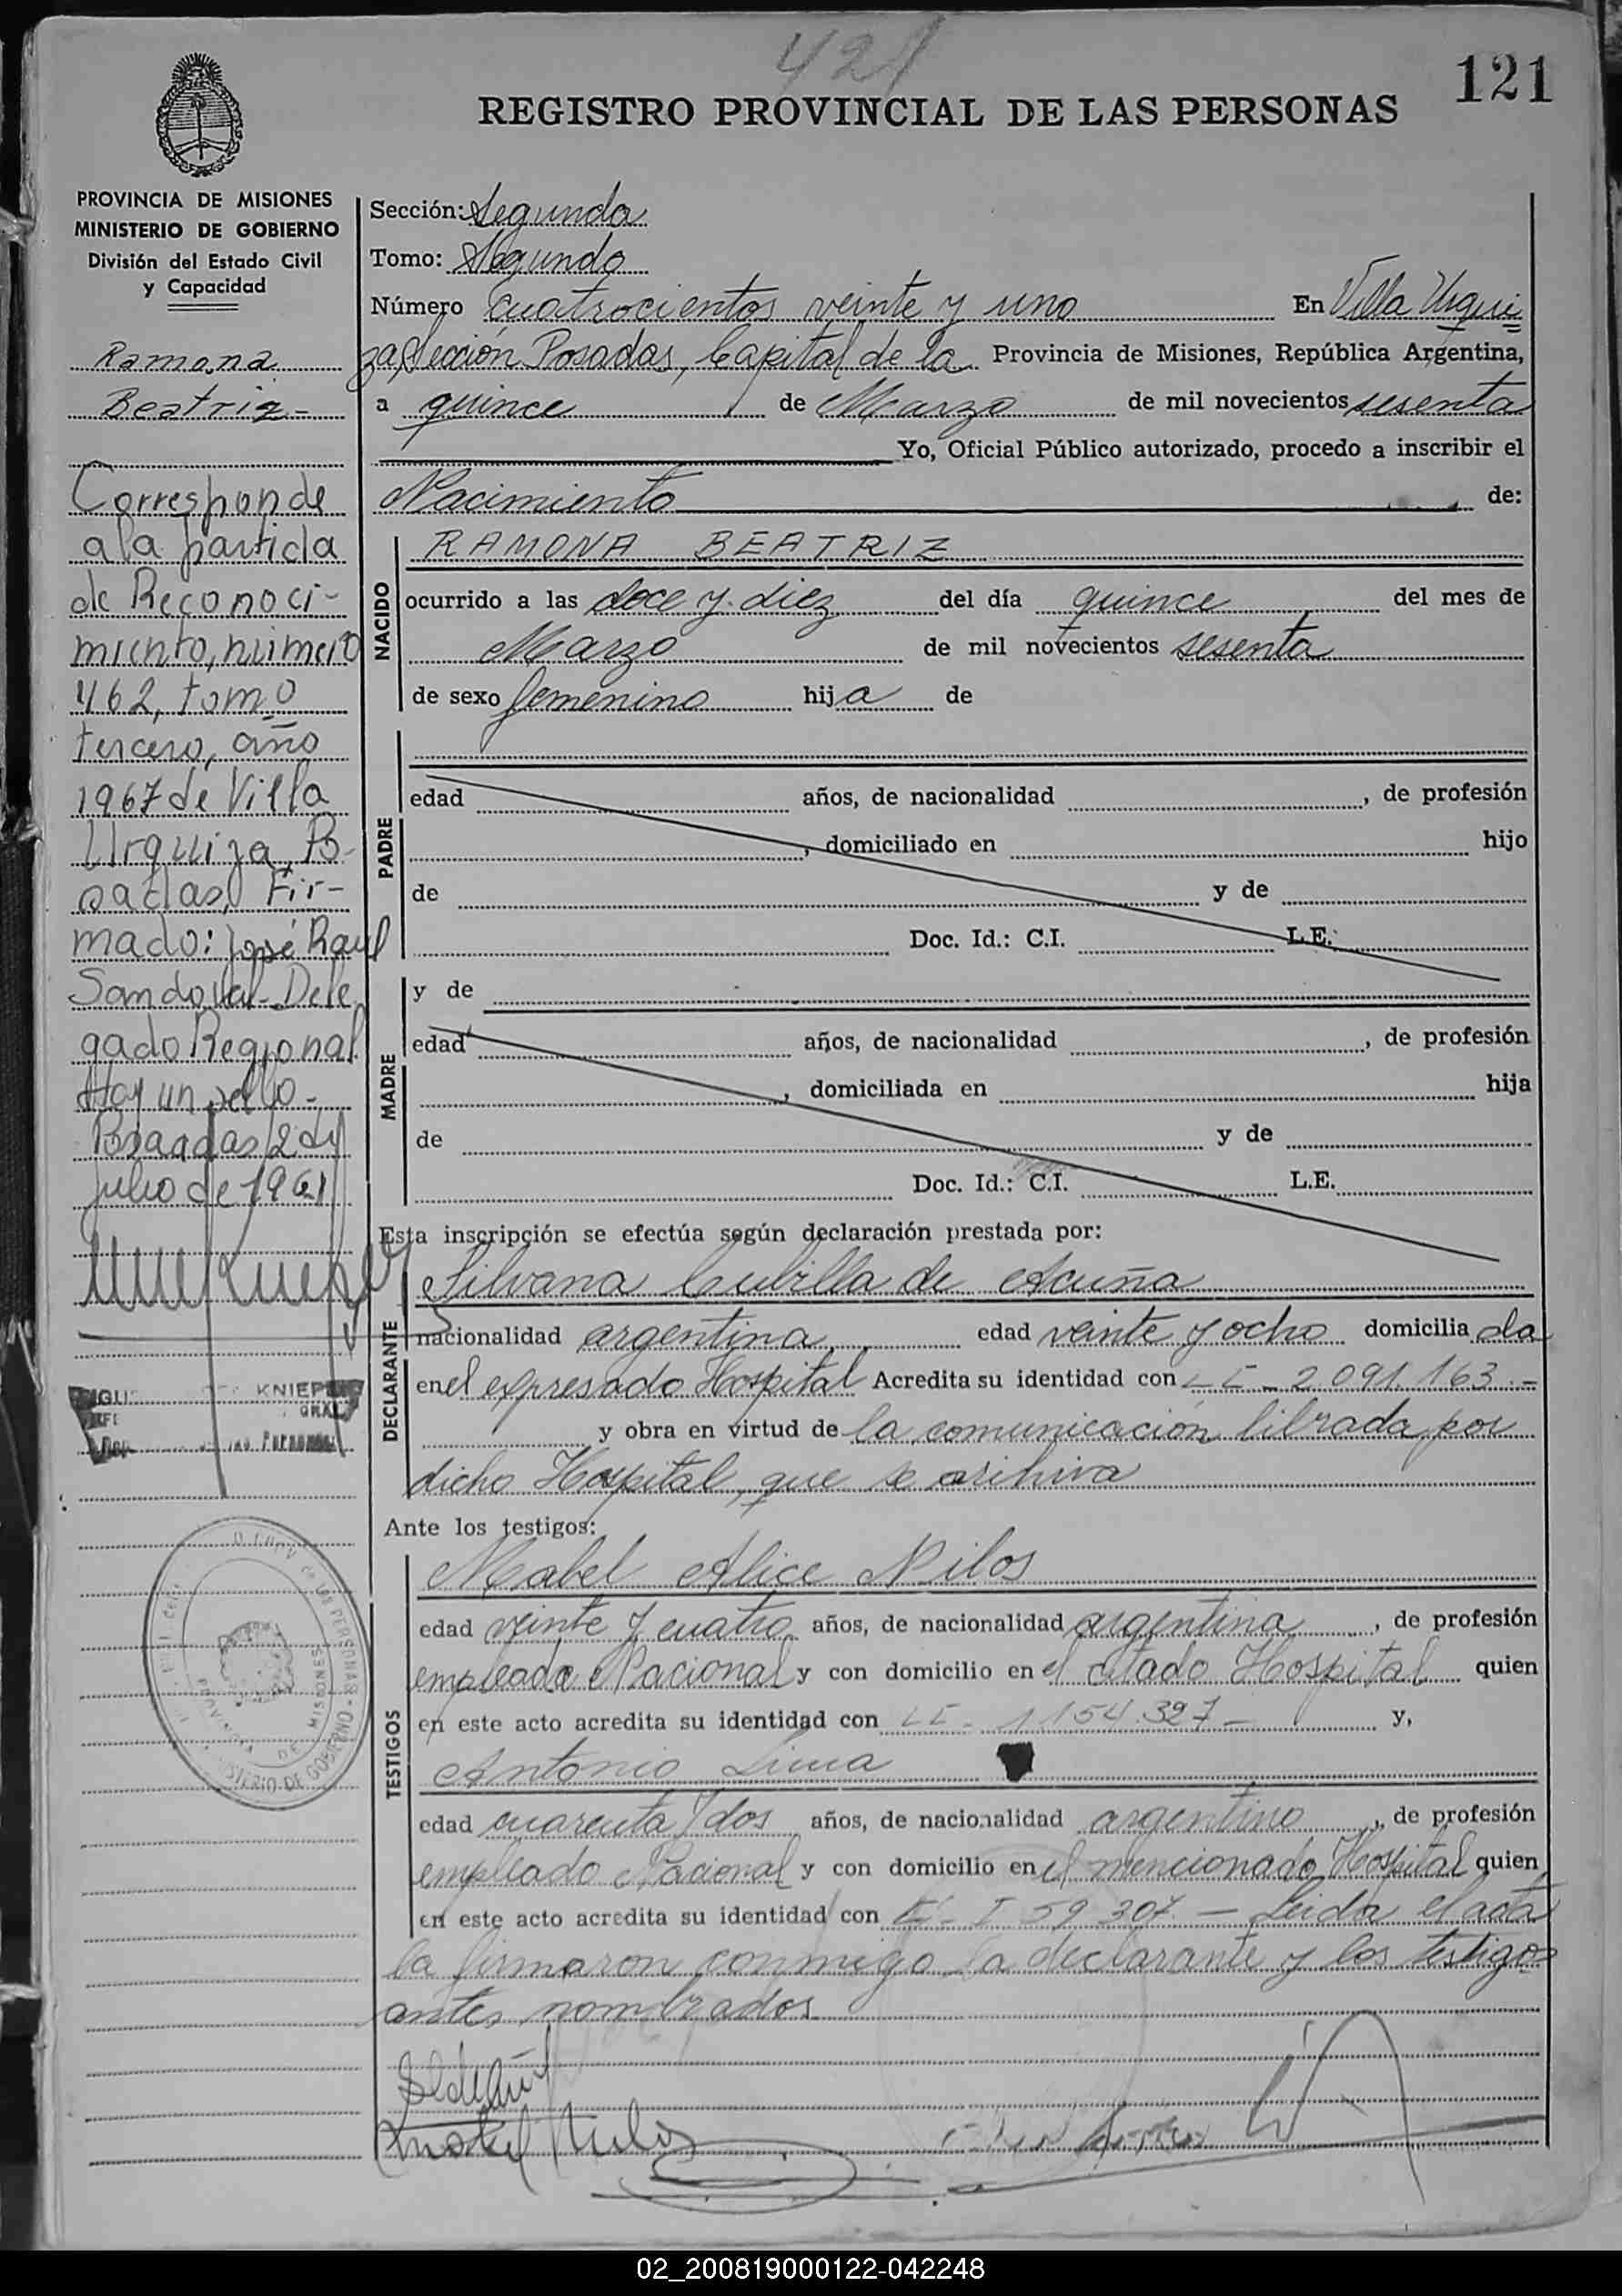 421
121
REGISTRO PROVINCIAL DE LAS PERSONAS
PROVINCIA DE MISIONES
MINISTERIO DE GOBIERNO
División del Estado Civil
y Capacidad
Ramona
Beatriz-
Corresponde
a la partida
de Reconoci-
miento, número
462, tomo
tercero, año
1967 de Villa
Urquiza, Po-
sadas, Fir-
mado: José Raul
Sandoval - Dele
gado Regional
Hay un sello -
Posadas, 2 de
julio de 196
KNIEP
GRAL
PROVINCIA DE MISIONES
Sección: Segunda
Tomo: Segundo
Número cuatrocientos veinte y uno En Villa Urqui
za, Sección Posadas, Capital de la Provincia de Misiones, República Argentina,
a quince de Marzo de mil novecientos sesenta
Yo, Oficial Público autorizado, procedo a inscribir el
Nacimiento de:
NACIDO
RAMONA BEATRIZ
ocurrido a las doce y diez del día quince del mes de
Marzo de mil novecientos sesenta
de sexo femenino hija de
PADRE
edad años, de nacionalidad , de profesión
, domiciliado en hijo
de y de
Doc. Id.: C.I. L.E.
MADRE
y de
edad años, de nacionalidad , de profesión
, domiciliada en hija
de y de
Doc. Id.: C.I. L.E.
Esta inscripción se efectúa según declaración prestada por:
DECLARANTE
Silvana Cubilla de Acuña
nacionalidad argentina edad veinte y ocho domicilia da
en el expresado Hospital Acredita su identidad con 2.091.163.-
y obra en virtud de la comunicación librada por
dicho Hospital, que se archiva
Ante los testigos:
TESTIGOS
Mabel Alice Nilos
edad veinte y cuatro años, de nacionalidad argentina , de profesión
empleada Nacional y con domicilio en el citado Hospital quien
en este acto acredita su identidad con 1.154.327- y,
Antonio Lima
edad cuarenta y dos años, de nacionalidad argentino , de profesión
empleado Nacional y con domicilio en el mencionado Hospital quien
en este acto acredita su identidad con 59 307 - Leida el acta
la firmaron conmigo la declarante y los testigos
antes nombrados
02_200819000122-042248